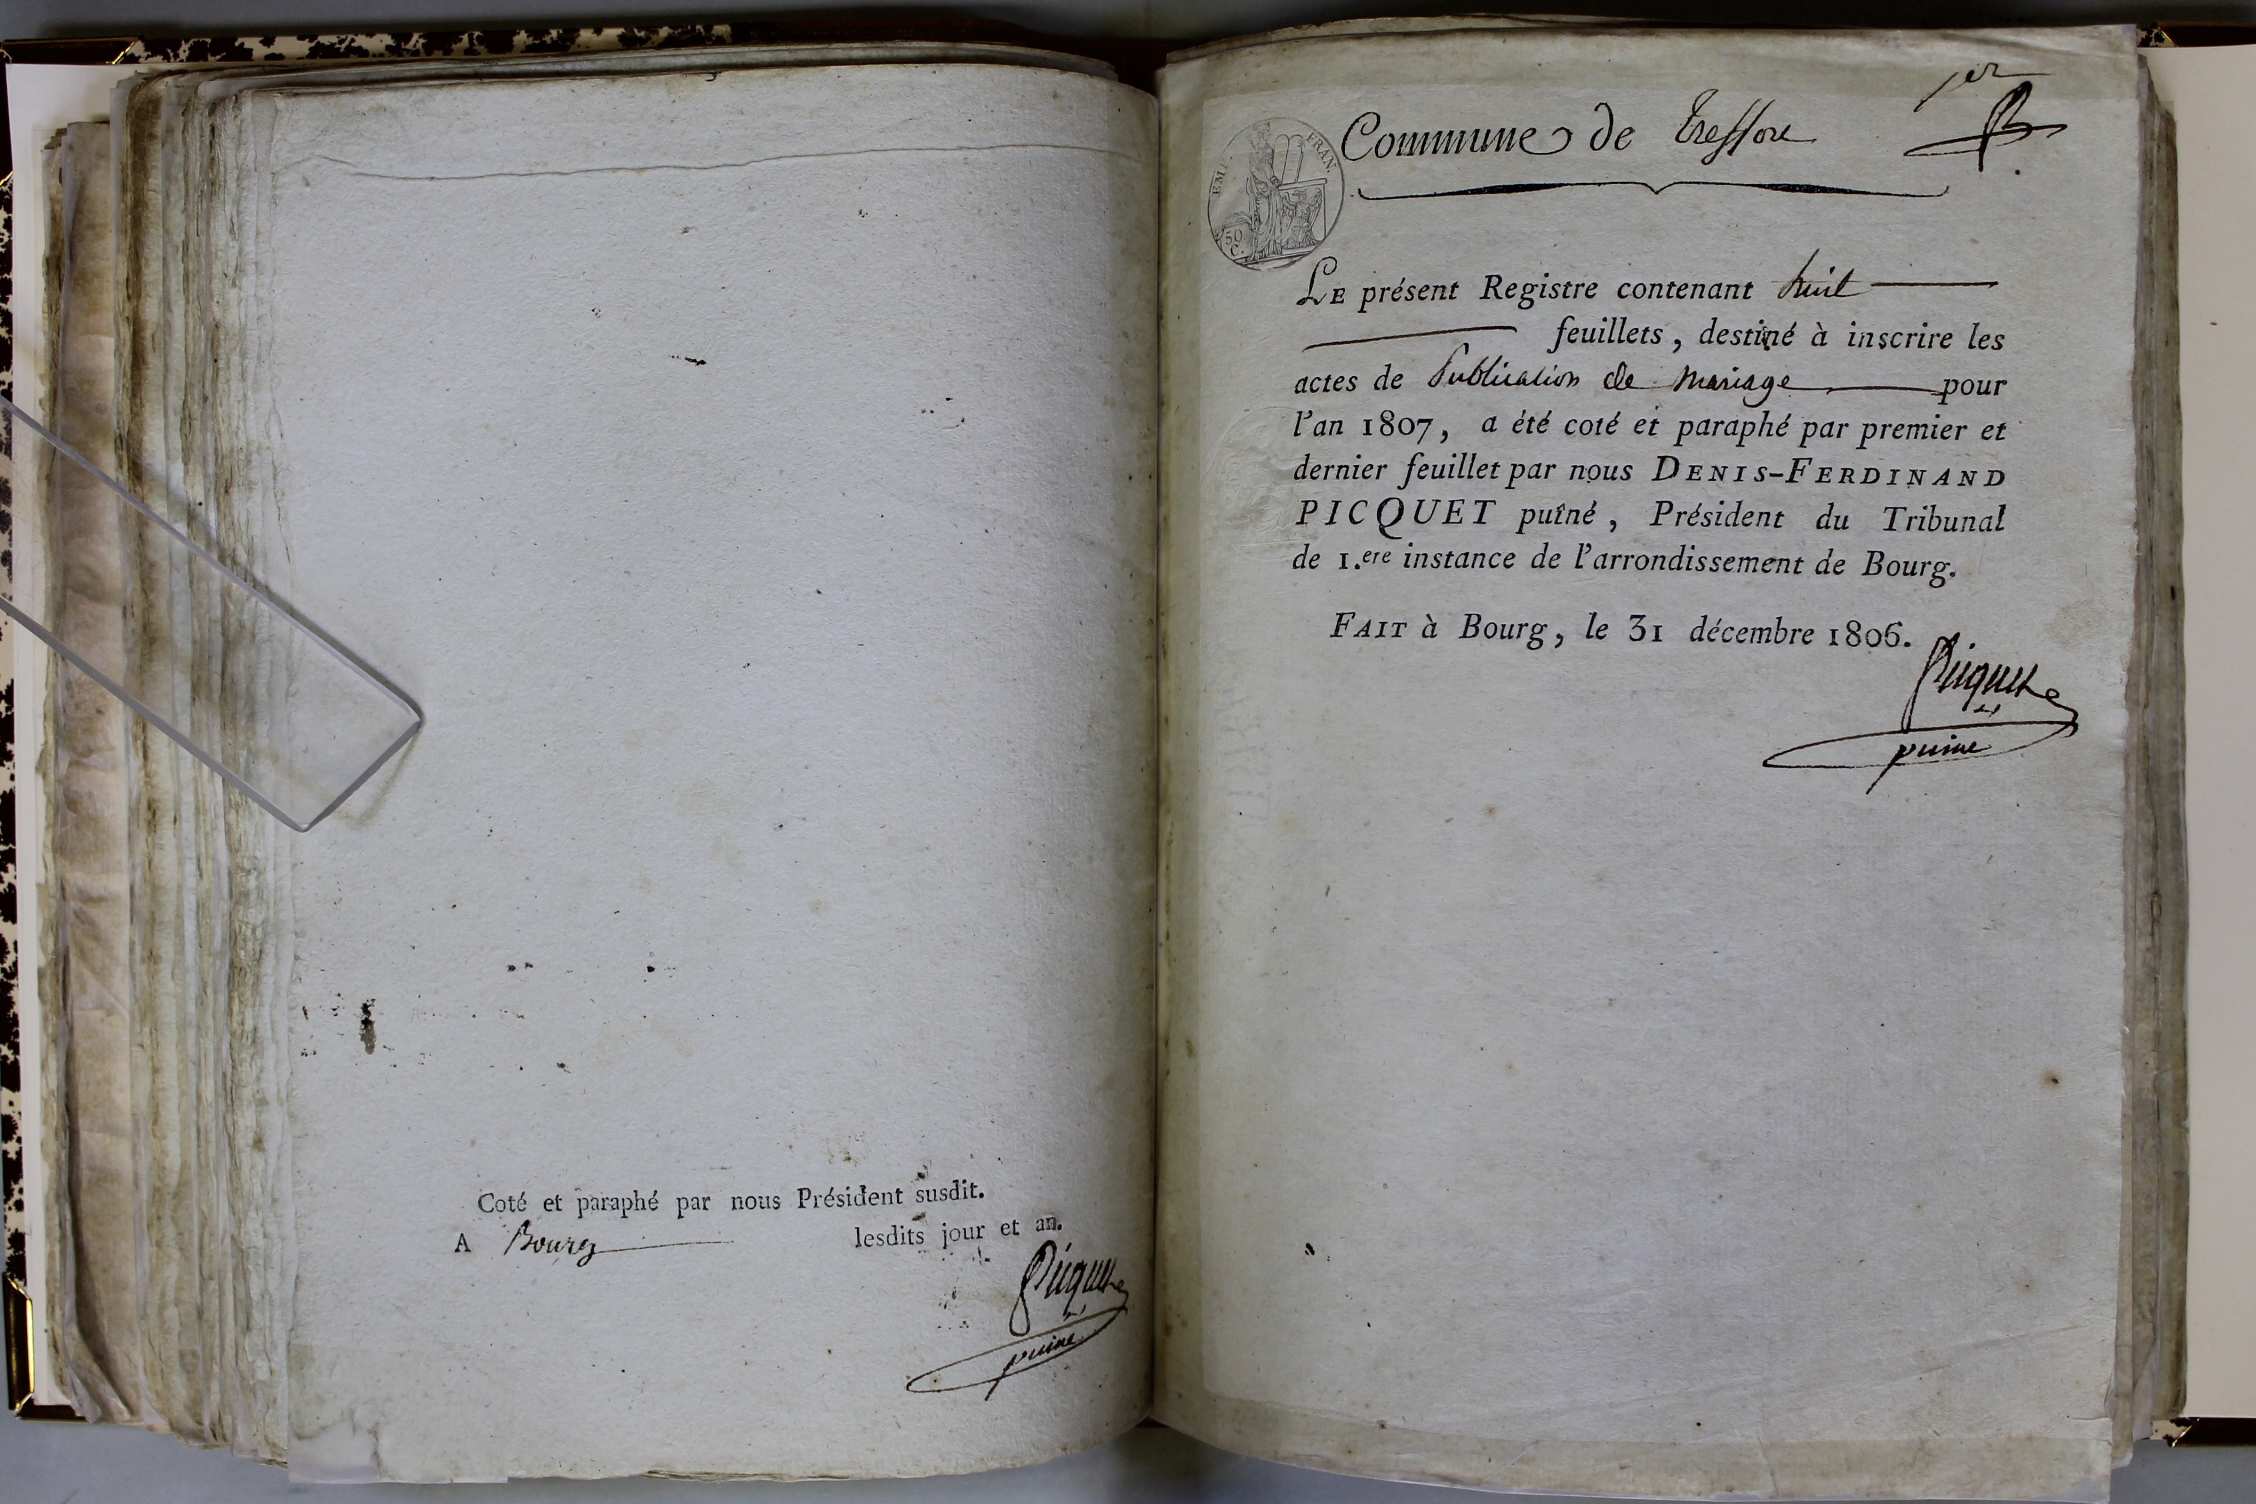 Coté et paraphé par nous Président susdit.
A Bourg lesdits jour et an.
Picquet
puiné
1er
Commune de Treffort
EMP. FRAN.
50
C.
LE présent Registre contenant huit
feuillets, destiné à inscrire les
actes de Publication de Mariage pour
l'an 1807, a été coté et paraphé par premier et
dernier feuillet par nous DENIS-FERDINAND
PICQUET puîné, Président du Tribunal
de 1.ere instance de l'arrondissement de Bourg.
FAIT à Bourg, le 31 décembre 1806.
Picquet
puiné